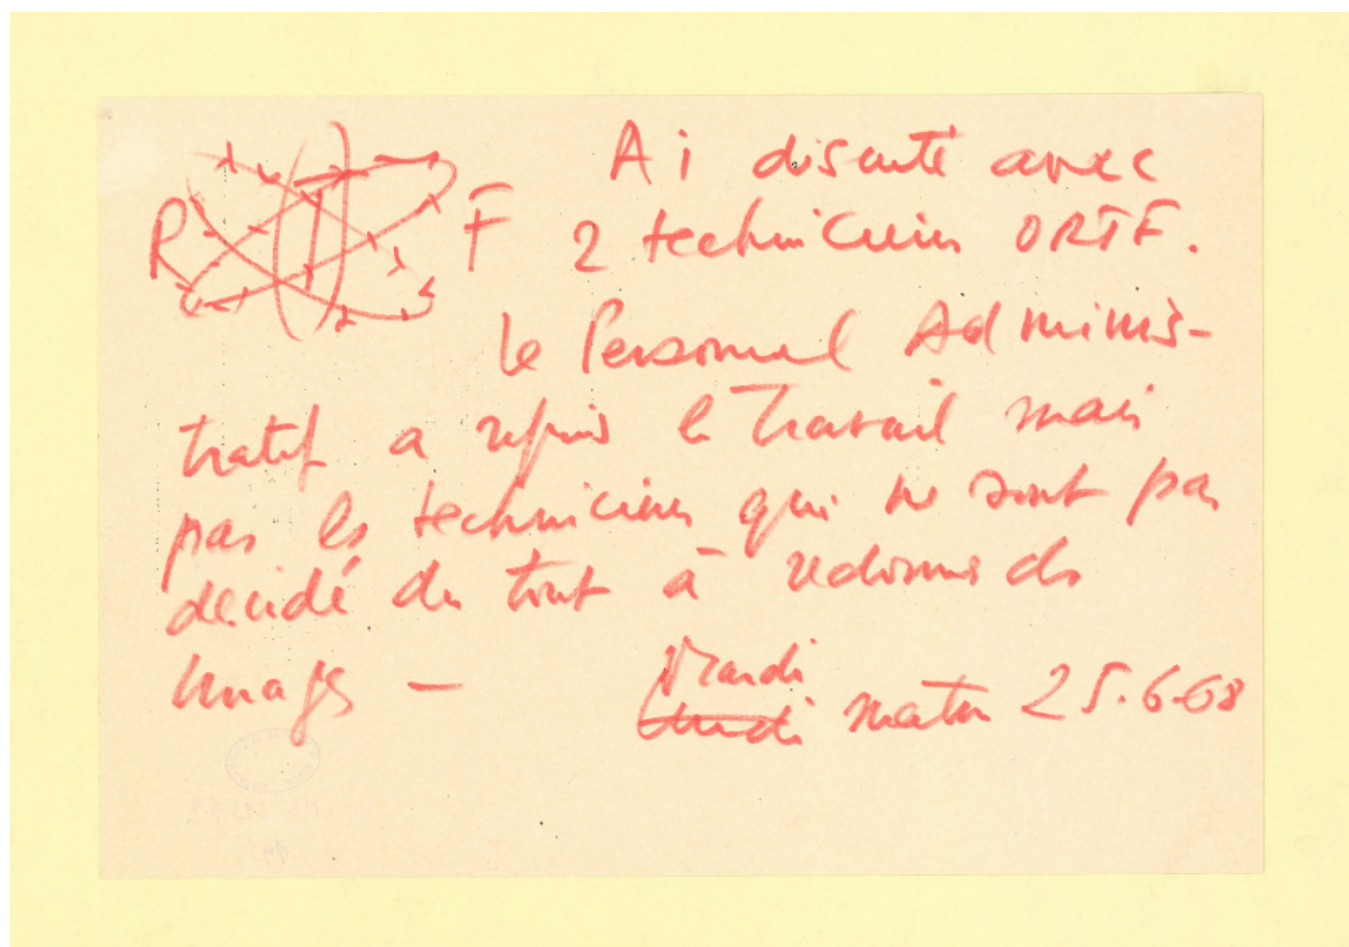 R T F
Ai discuté avec
2 techniciens ORTF.
Le Personnel Adminis-
tratif a repris le Travail mais
pas les techniciens qui ne sont pas
decidé du tout à redonner des
Images —
Mardi
Lundi matin 25.6.68